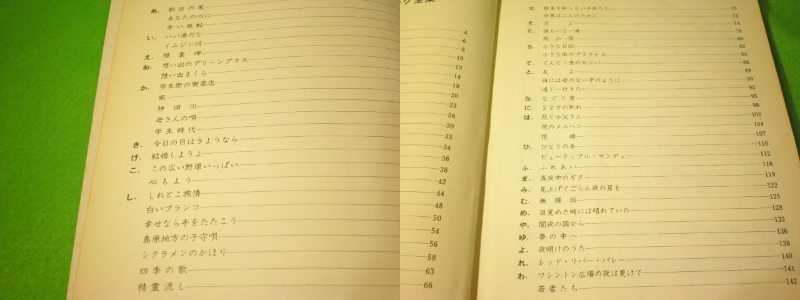 ング全集
あ. 朝日の家
あなたの心に
赤い風船
い. いい湯だな
イムジン河
え. 襟裳岬
お. 想い出のグリーングラス
想い出まくら
か. 学生街の喫茶店
風
神田川
母さんの唄
学生時代
き. 今日の日はさようなら
け. 結婚しようよ
こ. この広い野原いっぱい
心もよう
し. しれとこ旅情
白いブランコ
幸せなら手をたたこう
島原地方の子守唄
シクラメンのかほり
四季の歌
精霊流し
4
6
8
10
12
14
18
20
23
26
30
33
34
36
38
42
44
48
50
54
56
58
63
66
せ. 戦争を知らない子供たち 70
世界は二人のために 73
そ. 空よ 74
た. 誰もいない海 76
旅の宿 80
ち. 小さな日記 82
小さな街のプラタナス 84
て. てんとう虫のサンバ 86
と. 友よ 88
時には母のない子のように 90
遠くへ行きたい 92
な. なごり雪 95
に. 22才の別れ 98
は. 花と小父さん 102
花のメルヘン 104
花嫁 107
ひ. ひとりの手 110
ビューティフル・サンデー 112
ふ. ふれあい 118
ま. 真夜中のギター 119
み. 見上げてごらん夜の星を 122
む. 無縁坂 125
め. 目覚めた時には晴れていた 128
や. 闇夜の国から 132
ゆ. 夢の中へ 136
よ. 夜明けのうた 138
れ. レッド・リバー・バレー 140
わ. ワシントン広場の夜は更けて 141
若者たち 142